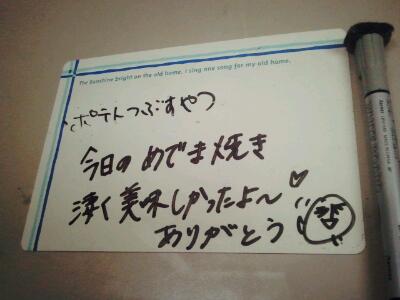 The Sunshine bright on the old home, I sing one song for my old home.
ポテトつぶすやつ
今日のめでま焼き
凄く美味しかったよ〜♡
ありがとう